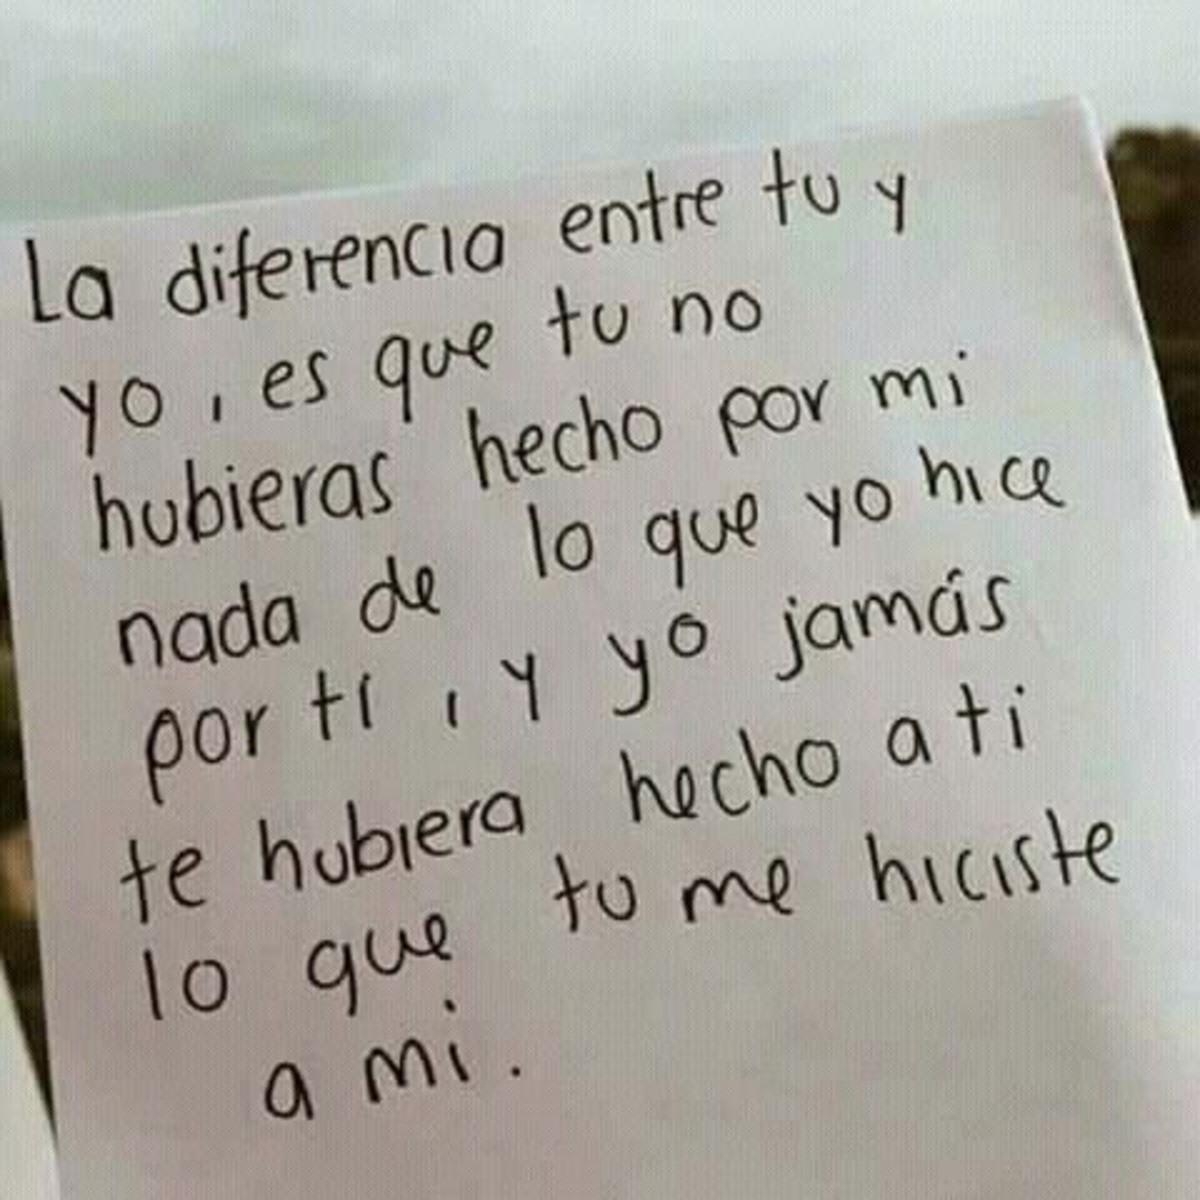 La diferencia entre tu y
yo, es que tu no
hubieras hecho por mi
nada de lo que yo hice
por ti, y yo jamás
te hubiera hecho a ti
lo que tu me hiciste
a mi.